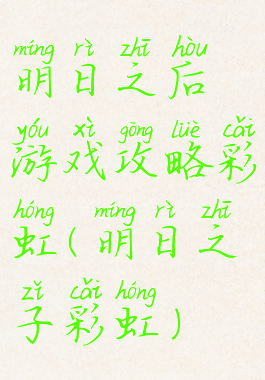 míng rì zhī hòu
明日之后
yóu xì gōng lüè cǎi
游戏攻略彩
hóng míng rì zhī
虹(明日之
zǐ cǎi hóng
子彩虹)